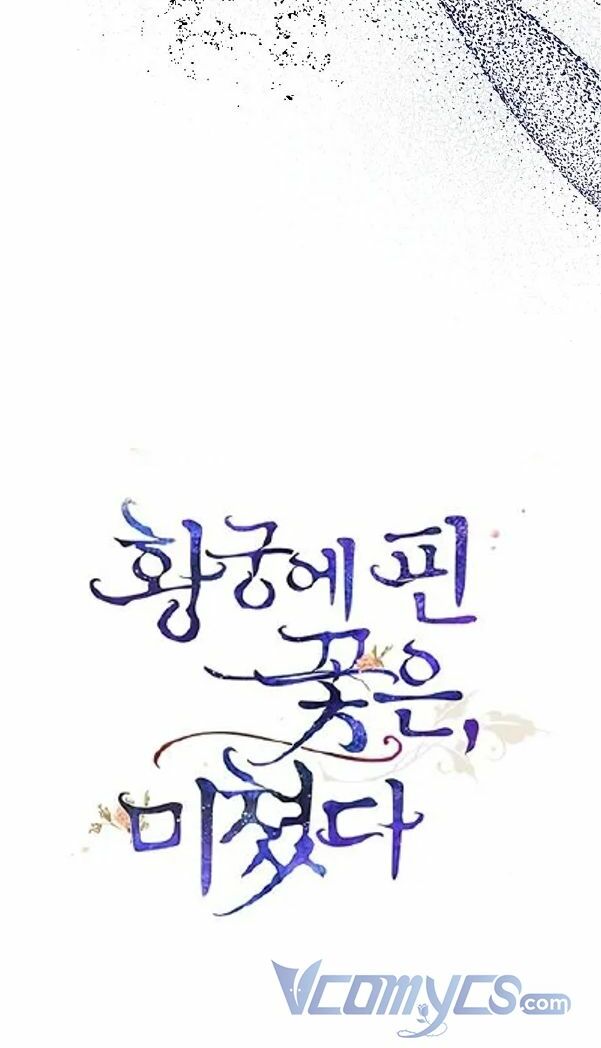 황궁에 핀
꽃은,
미쳤다
Vcomycs.com